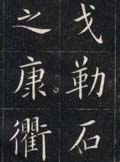 戈勒石
之康衢